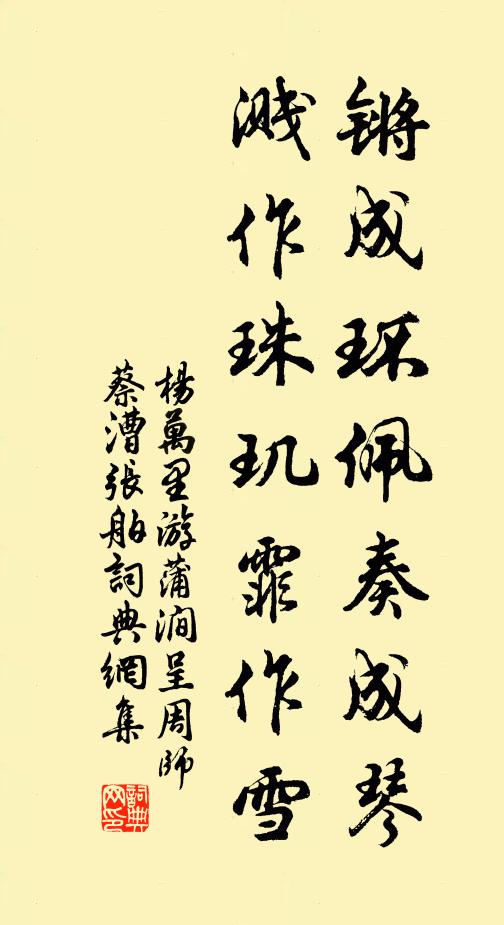 锵成环佩奏成琴
溅作珠玑霏作雪
楊萬里游蒲澗呈周帥
蔡漕張舶詞典網集
詞典网印